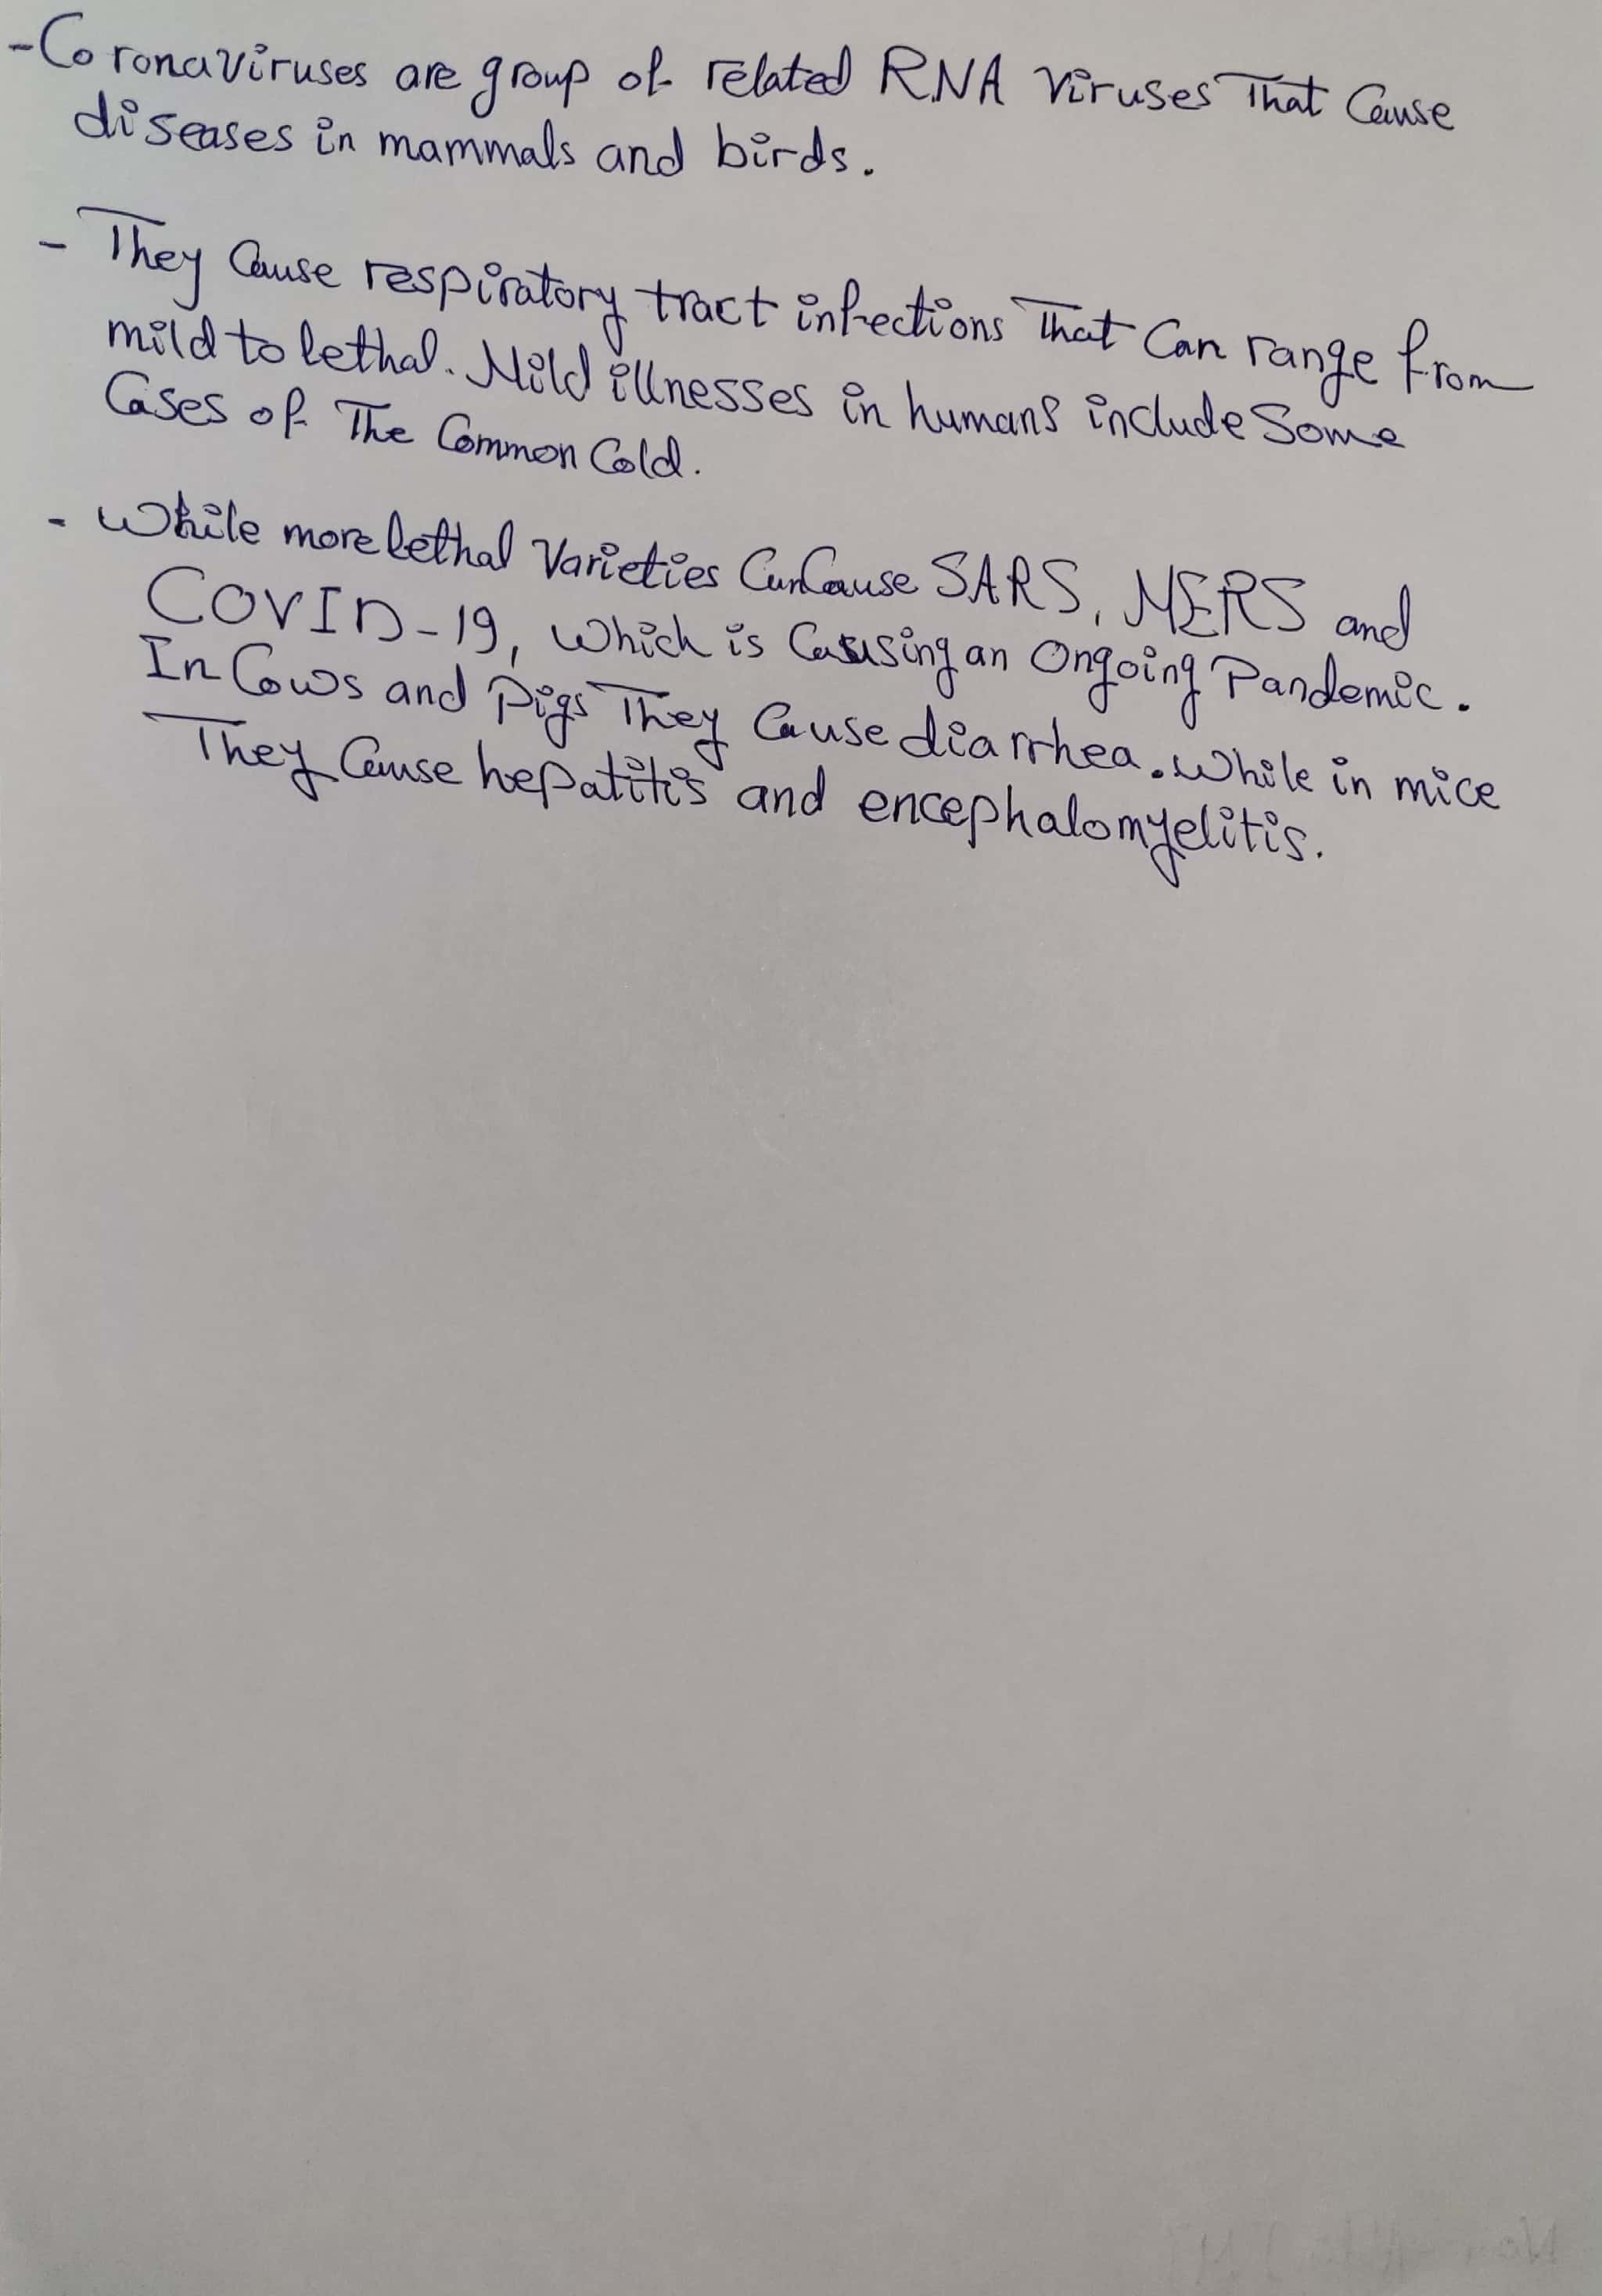 -Coronaviruses are group of related RNA viruses That Cause
diseases in mammals and birds.
- They Cause respiratory tract infections That Can range from
mild to lethal. Mild illnesses in humans include Some
Cases of The Common Cold.
- While more lethal Varieties Can Cause SARS, MERS and
COVID-19, which is Causing an Ongoing Pandemic.
In Cows and Pigs They Cause diarrhea. While in mice
They Cause hepatitis and encephalomyelitis.